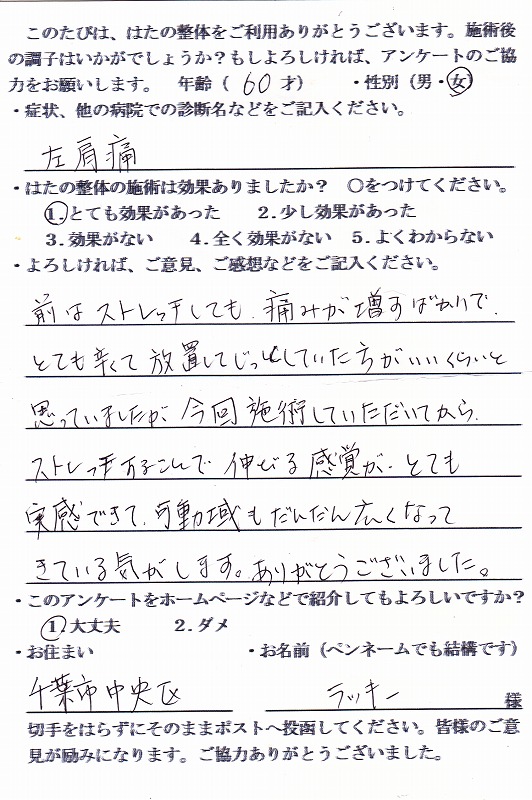 このたびは、はたの整体をご利用ありがとうございます。施術後
の調子はいかがでしょうか？もしよろしければ、アンケートのご協
力をお願いします。　年齢（ 60 才）　・性別（男・女）
・症状、他の病院での診断名などをご記入ください。
左肩痛
・はたの整体の施術は効果ありましたか？　〇をつけてください。
1.とても効果があった　2.少し効果があった
3.効果がない　4.全く効果がない　5.よくわからない
・よろしければ、ご意見、ご感想などをご記入ください。
前はストレッチしても、痛みが増すばかりで、
とても辛くて放置してじっとしていた方がいいくらいと
思っていましたが今回施術していただいてから、
ストレッチすることで伸びる感覚が、とても
実感できて、可動域もだんだん広くなって
きている気がします。ありがとうございました。
・このアンケートをホームページなどで紹介してもよろしいですか？
1.大丈夫　2.ダメ
・お住まい　・お名前（ペンネームでも結構です）
千葉市中央区　ラッキー　様
切手をはらずにそのままポストへ投函してください。皆様のご意
見が励みになります。ご協力ありがとうございました。